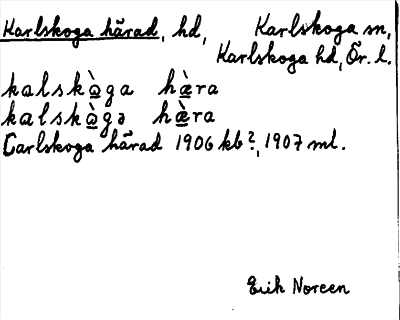 Karlskoga härad, hd, Karlskoga sn,
Karlskoga hd, Ör. l.
kalskò̲ga hæ̲̀ra
kalskò̲gə hæ̲̀ra
Carlskoga härad 1906 kb?, 1907 ml.
Erik Noreen